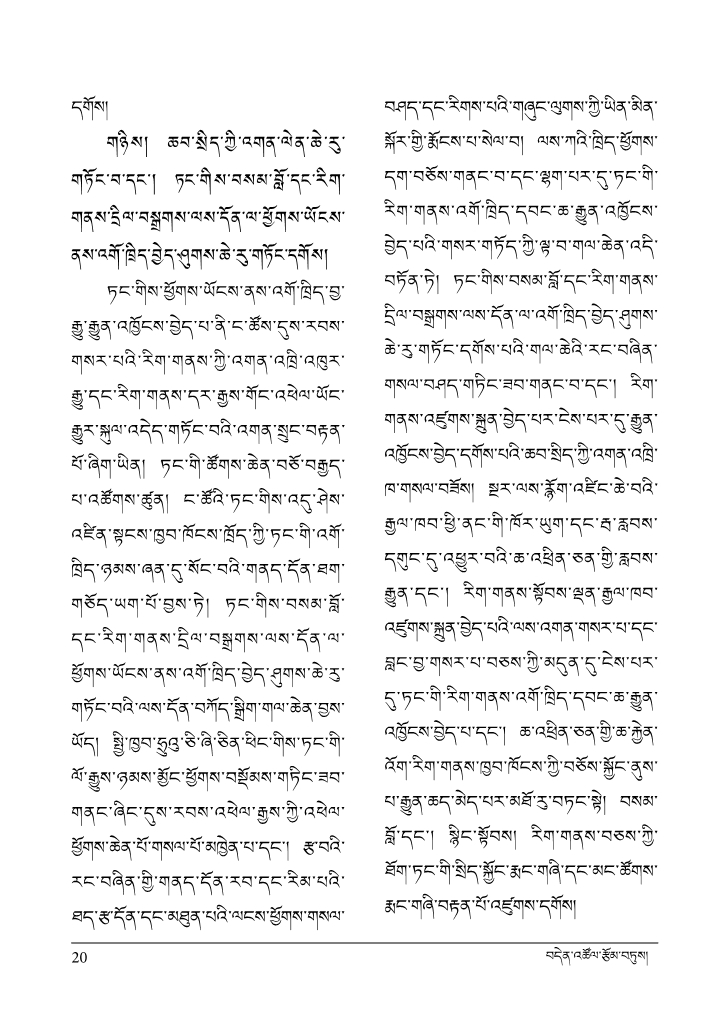 དགོས།
གཉིས། ཆབ་སྲིད་ཀྱི་འགན་ལེན་ཆེ་རུ་
གཏོང་བ་དང་། ཏང་གིས་བསམ་བློ་དང་རིག་
གནས་དྲིལ་བསྒྲགས་ལས་དོན་ལ་ཕྱོགས་ཡོངས་
ནས་འགོ་ཁྲིད་བྱེད་ཤུགས་ཆེ་རུ་གཏོང་དགོས།
ཏང་གིས་ཕྱོགས་ཡོངས་ནས་འགོ་ཁྲིད་བྱ་
རྒྱུ་རྒྱུན་འཁྱོངས་བྱེད་པ་ནི་ང་ཚོས་དུས་རབས་
གསར་པའི་རིག་གནས་ཀྱི་འགན་འཁྲི་འཁུར་
རྒྱུ་དང་རིག་གནས་དར་རྒྱས་གོང་འཕེལ་ཡོང་
རྒྱུར་སྐུལ་འདེད་གཏོང་བའི་འགན་སྲུང་བརྟན་
པོ་ཞིག་ཡིན། ཏང་གི་ཚོགས་ཆེན་བཅོ་བརྒྱད་
པ་འཚོགས་ཚུན། ང་ཚོའི་ཏང་གིས་འདུ་ཤེས་
འཛིན་སྟངས་ཁྱབ་ཁོངས་ཁྲོད་ཀྱི་ཏང་གི་འགོ་
ཁྲིད་ཉམས་ཞན་དུ་སོང་བའི་གནད་དོན་ཐག་
གཅོད་ཡག་པོ་བྱས་ཏེ། ཏང་གིས་བསམ་བློ་
དང་རིག་གནས་དྲིལ་བསྒྲགས་ལས་དོན་ལ་
ཕྱོགས་ཡོངས་ནས་འགོ་ཁྲིད་བྱེད་ཤུགས་ཆེ་རུ་
གཏོང་བའི་ལས་དོན་བཀོད་སྒྲིག་གལ་ཆེན་བྱས་
ཡོད། སྤྱི་ཁྱབ་ཧྲུའུ་ཅི་ཞི་ཅིན་ཕིང་གིས་ཏང་གི་
ལོ་རྒྱུས་ཉམས་མྱོང་ཕྱོགས་བསྡོམས་གཏིང་ཟབ་
གནང་ཞིང་དུས་རབས་འཕེལ་རྒྱས་ཀྱི་འཕེལ་
ཕྱོགས་ཆེན་པོ་གསལ་པོ་མཁྱེན་པ་དང་། རྩ་བའི་
རང་བཞིན་གྱི་གནད་དོན་རབ་དང་རིམ་པའི་
ཐད་རྩ་དོན་དང་མཐུན་པའི་ལངས་ཕྱོགས་གསལ་
བཤད་དང་རིགས་པའི་གཞུང་ལུགས་ཀྱི་ཡིན་མིན་
སྐོར་གྱི་རྨོངས་པ་སེལ་བ། ལས་ཀའི་ཁྲིད་ཕྱོགས་
དག་བཅོས་གནང་བ་དང་ལྷག་པར་དུ་ཏང་གི་
རིག་གནས་འགོ་ཁྲིད་དབང་ཆ་རྒྱུན་འཁྱོངས་
བྱེད་པའི་གསར་གཏོད་ཀྱི་ལྟ་བ་གལ་ཆེན་འདི་
བཏོན་ཏེ། ཏང་གིས་བསམ་བློ་དང་རིག་གནས་
དྲིལ་བསྒྲགས་ལས་དོན་ལ་འགོ་ཁྲིད་བྱེད་ཤུགས་
ཆེ་རུ་གཏོང་དགོས་པའི་གལ་ཆེའི་རང་བཞིན་
གསལ་བཤད་གཏིང་ཟབ་གནང་བ་དང་། རིག་
གནས་འཛུགས་སྐྲུན་བྱེད་པར་ངེས་པར་དུ་རྒྱུན་
འཁྱོངས་བྱེད་དགོས་པའི་ཆབ་སྲིད་ཀྱི་འགན་འཁྲི་
ཁ་གསལ་བཟོས། སྔར་ལས་རྙོག་འཛིང་ཆེ་བའི་
རྒྱལ་ཁབ་ཕྱི་ནང་གི་ཁོར་ཡུག་དང་རྦ་རླབས་
དགུང་དུ་འཕྱུར་བའི་ཆ་འཕྲིན་ཅན་གྱི་རླབས་
རྒྱུན་དང་། རིག་གནས་སྟོབས་ལྡན་རྒྱལ་ཁབ་
འཛུགས་སྐྲུན་བྱེད་པའི་ལས་འགན་གསར་པ་དང་
བླང་བྱ་གསར་པ་བཅས་ཀྱི་མདུན་དུ་ངེས་པར་
དུ་ཏང་གི་རིག་གནས་འགོ་ཁྲིད་དབང་ཆ་རྒྱུན་
འཁྱོངས་བྱེད་པ་དང་། ཆ་འཕྲིན་ཅན་གྱི་ཆ་རྐྱེན་
འོག་རིག་གནས་ཁྱབ་ཁོངས་ཀྱི་བཅོས་སྐྱོང་ནུས་
པ་རྒྱུན་ཆད་མེད་པར་མཐོ་རུ་བཏང་སྟེ། བསམ་
བློ་དང་། སྙིང་སྟོབས། རིག་གནས་བཅས་ཀྱི་
ཐོག་ཏང་གི་སྲིད་སྐྱོང་རྨང་གཞི་དང་མང་ཚོགས་
རྨང་གཞི་བརྟན་པོ་འཛུགས་དགོས།
20
བདེན་འཚོལ་རྩོམ་བཏུས།